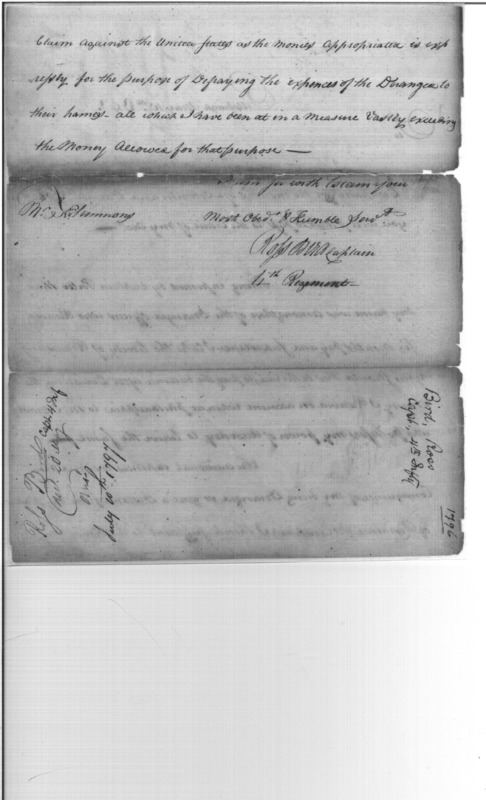 Claim against the United States as the monies appropriated is exp
ressly for the purpose of Defraying the expences of the Dragoons to
their homes— all which I have been at in a measure Vastly exceeding
the Money Allowed for that purpose —
I am Sir with Esteem your
Most Obedt. & Humble Servt.
Mr. Simmons
Ross Bird Captain
4th Regiment—
Ross Bird
July 10th 1796
Bird, Ross
Capt, 4th Infy
1796